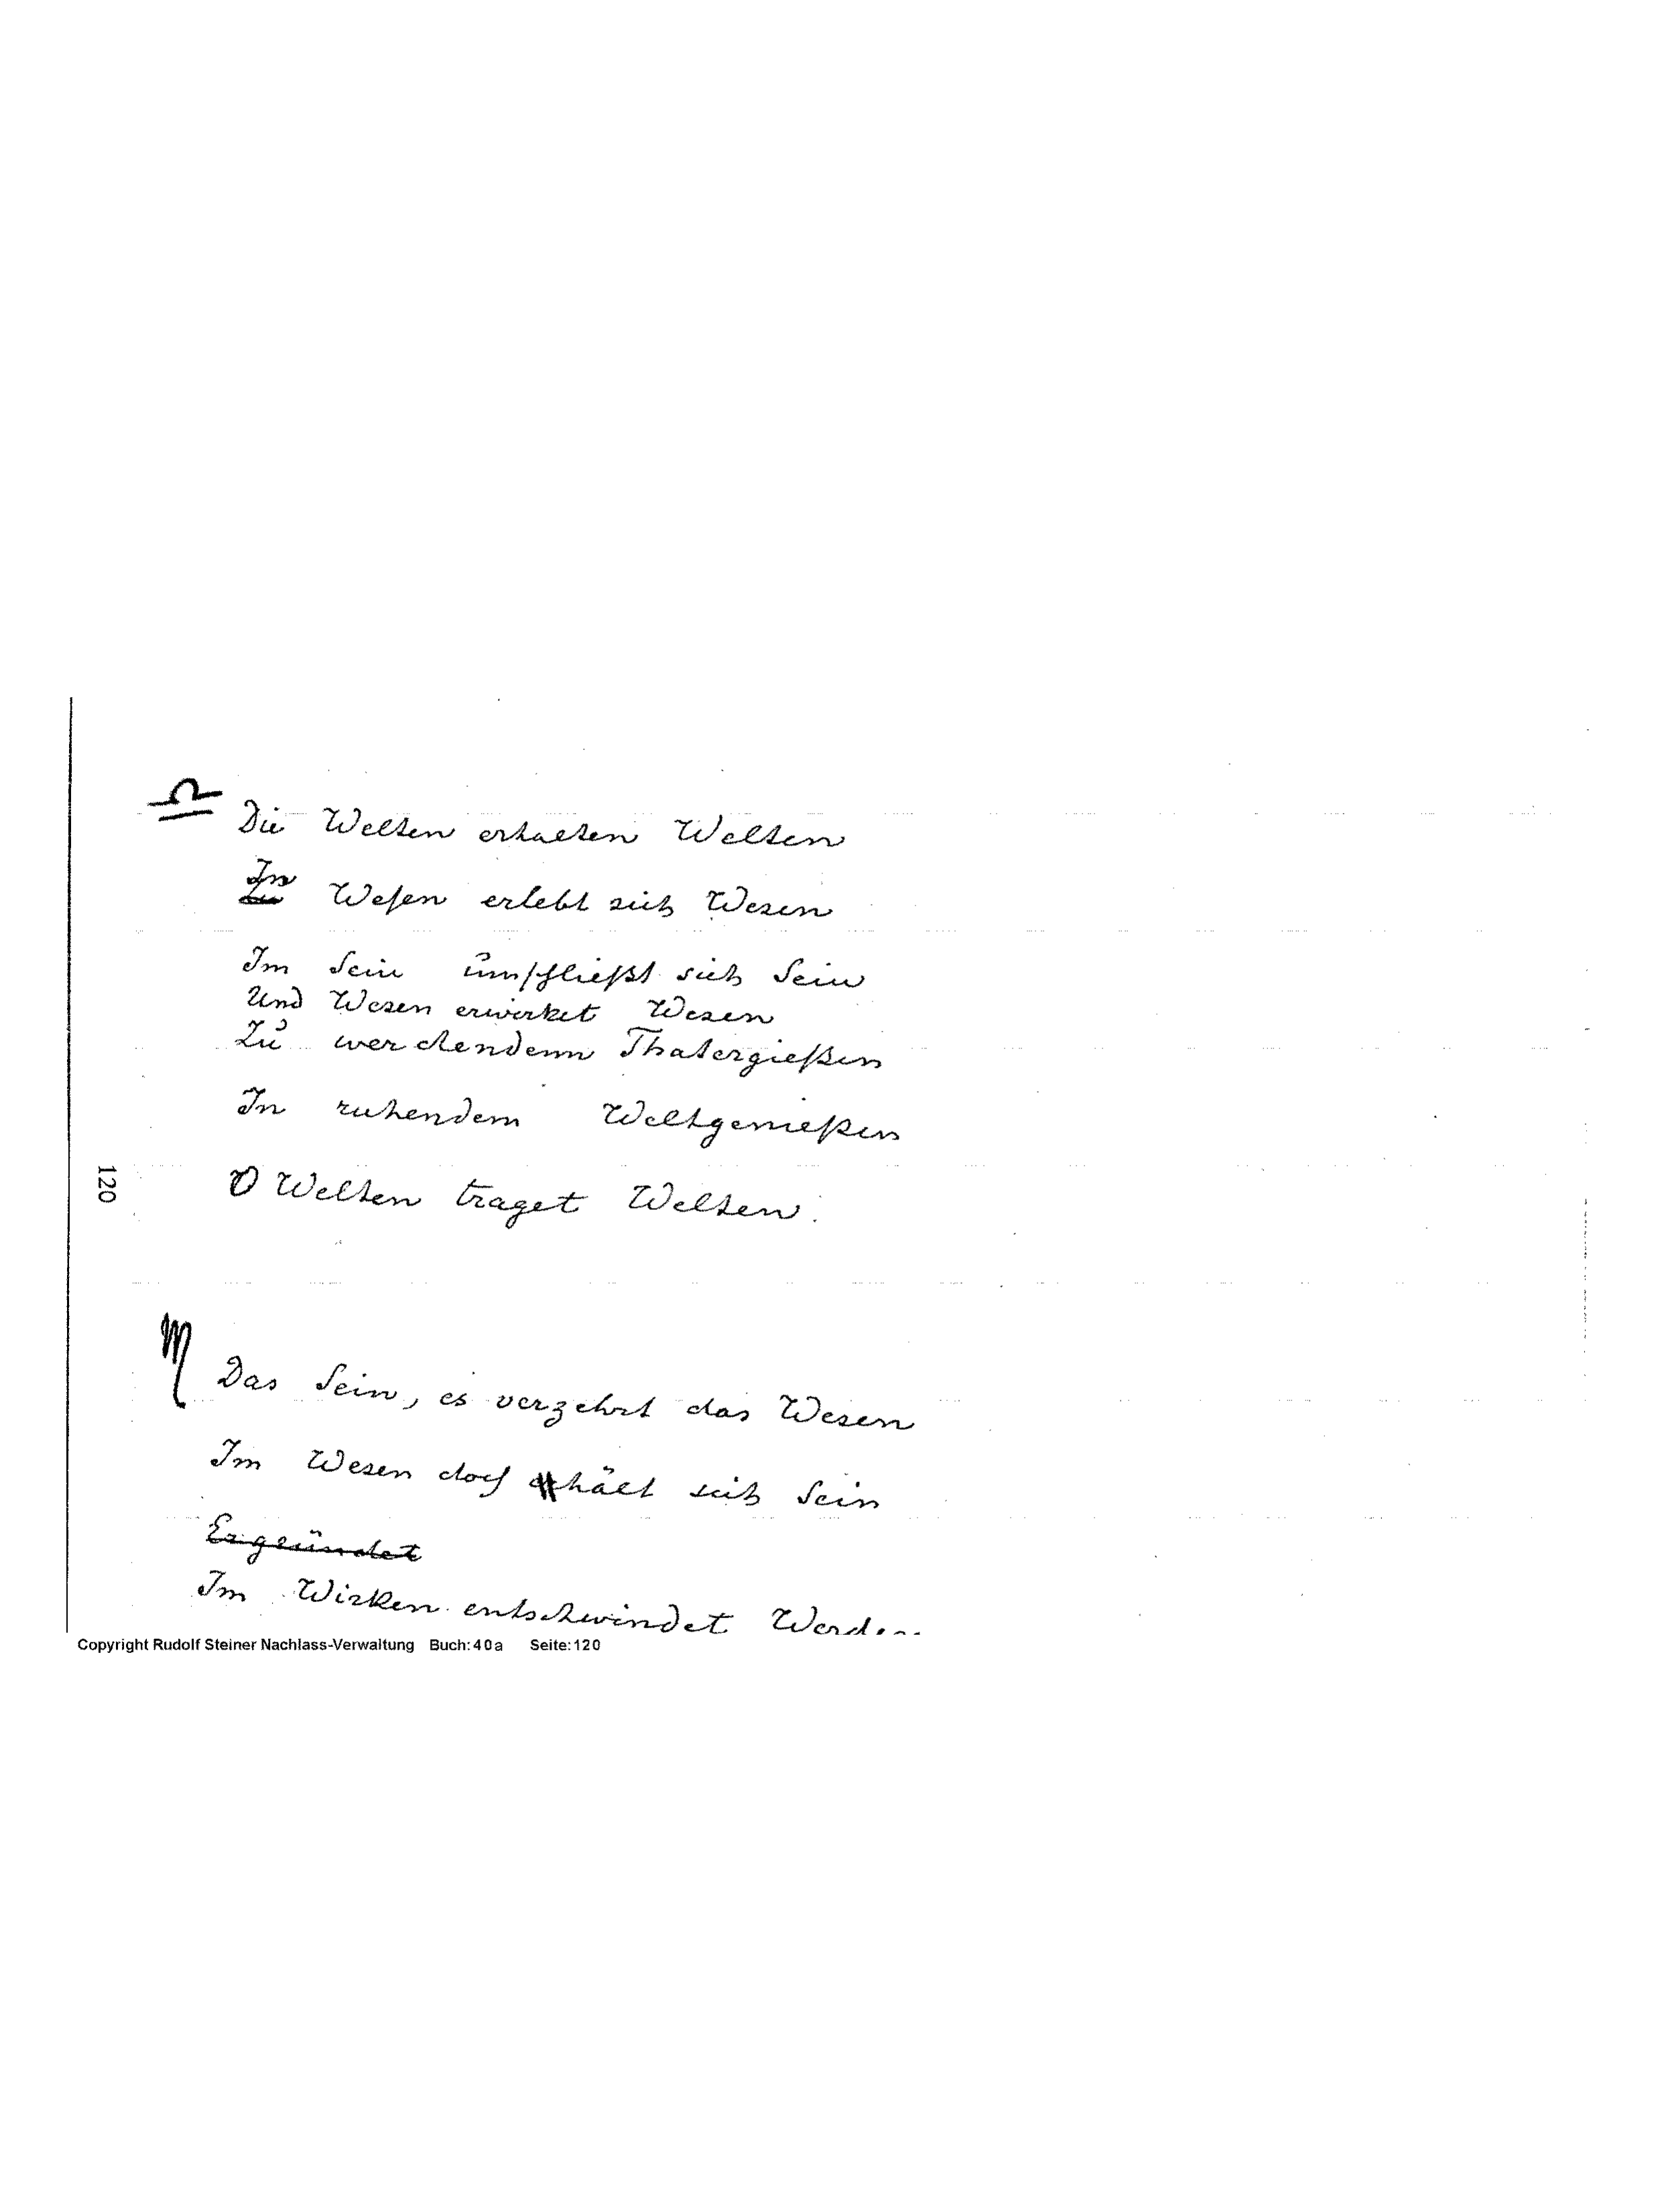 ♎ Die Welten erhalten Welten
In
Zu Wesen erlebt sich Wesen
Im Sein umschließt sich Sein
Und Wesen erwirket Wesen
Zu werdendem Thatergießen
In ruhendem Weltgenießen
O Welten traget Welten.
120
♏ Das Sein, es verzehrt das Wesen
Im Wesen doch hält sich Sein
Ergründet
Im Wirken entschwindet Werden
Copyright Rudolf Steiner Nachlass-Verwaltung Buch: 40a Seite: 120